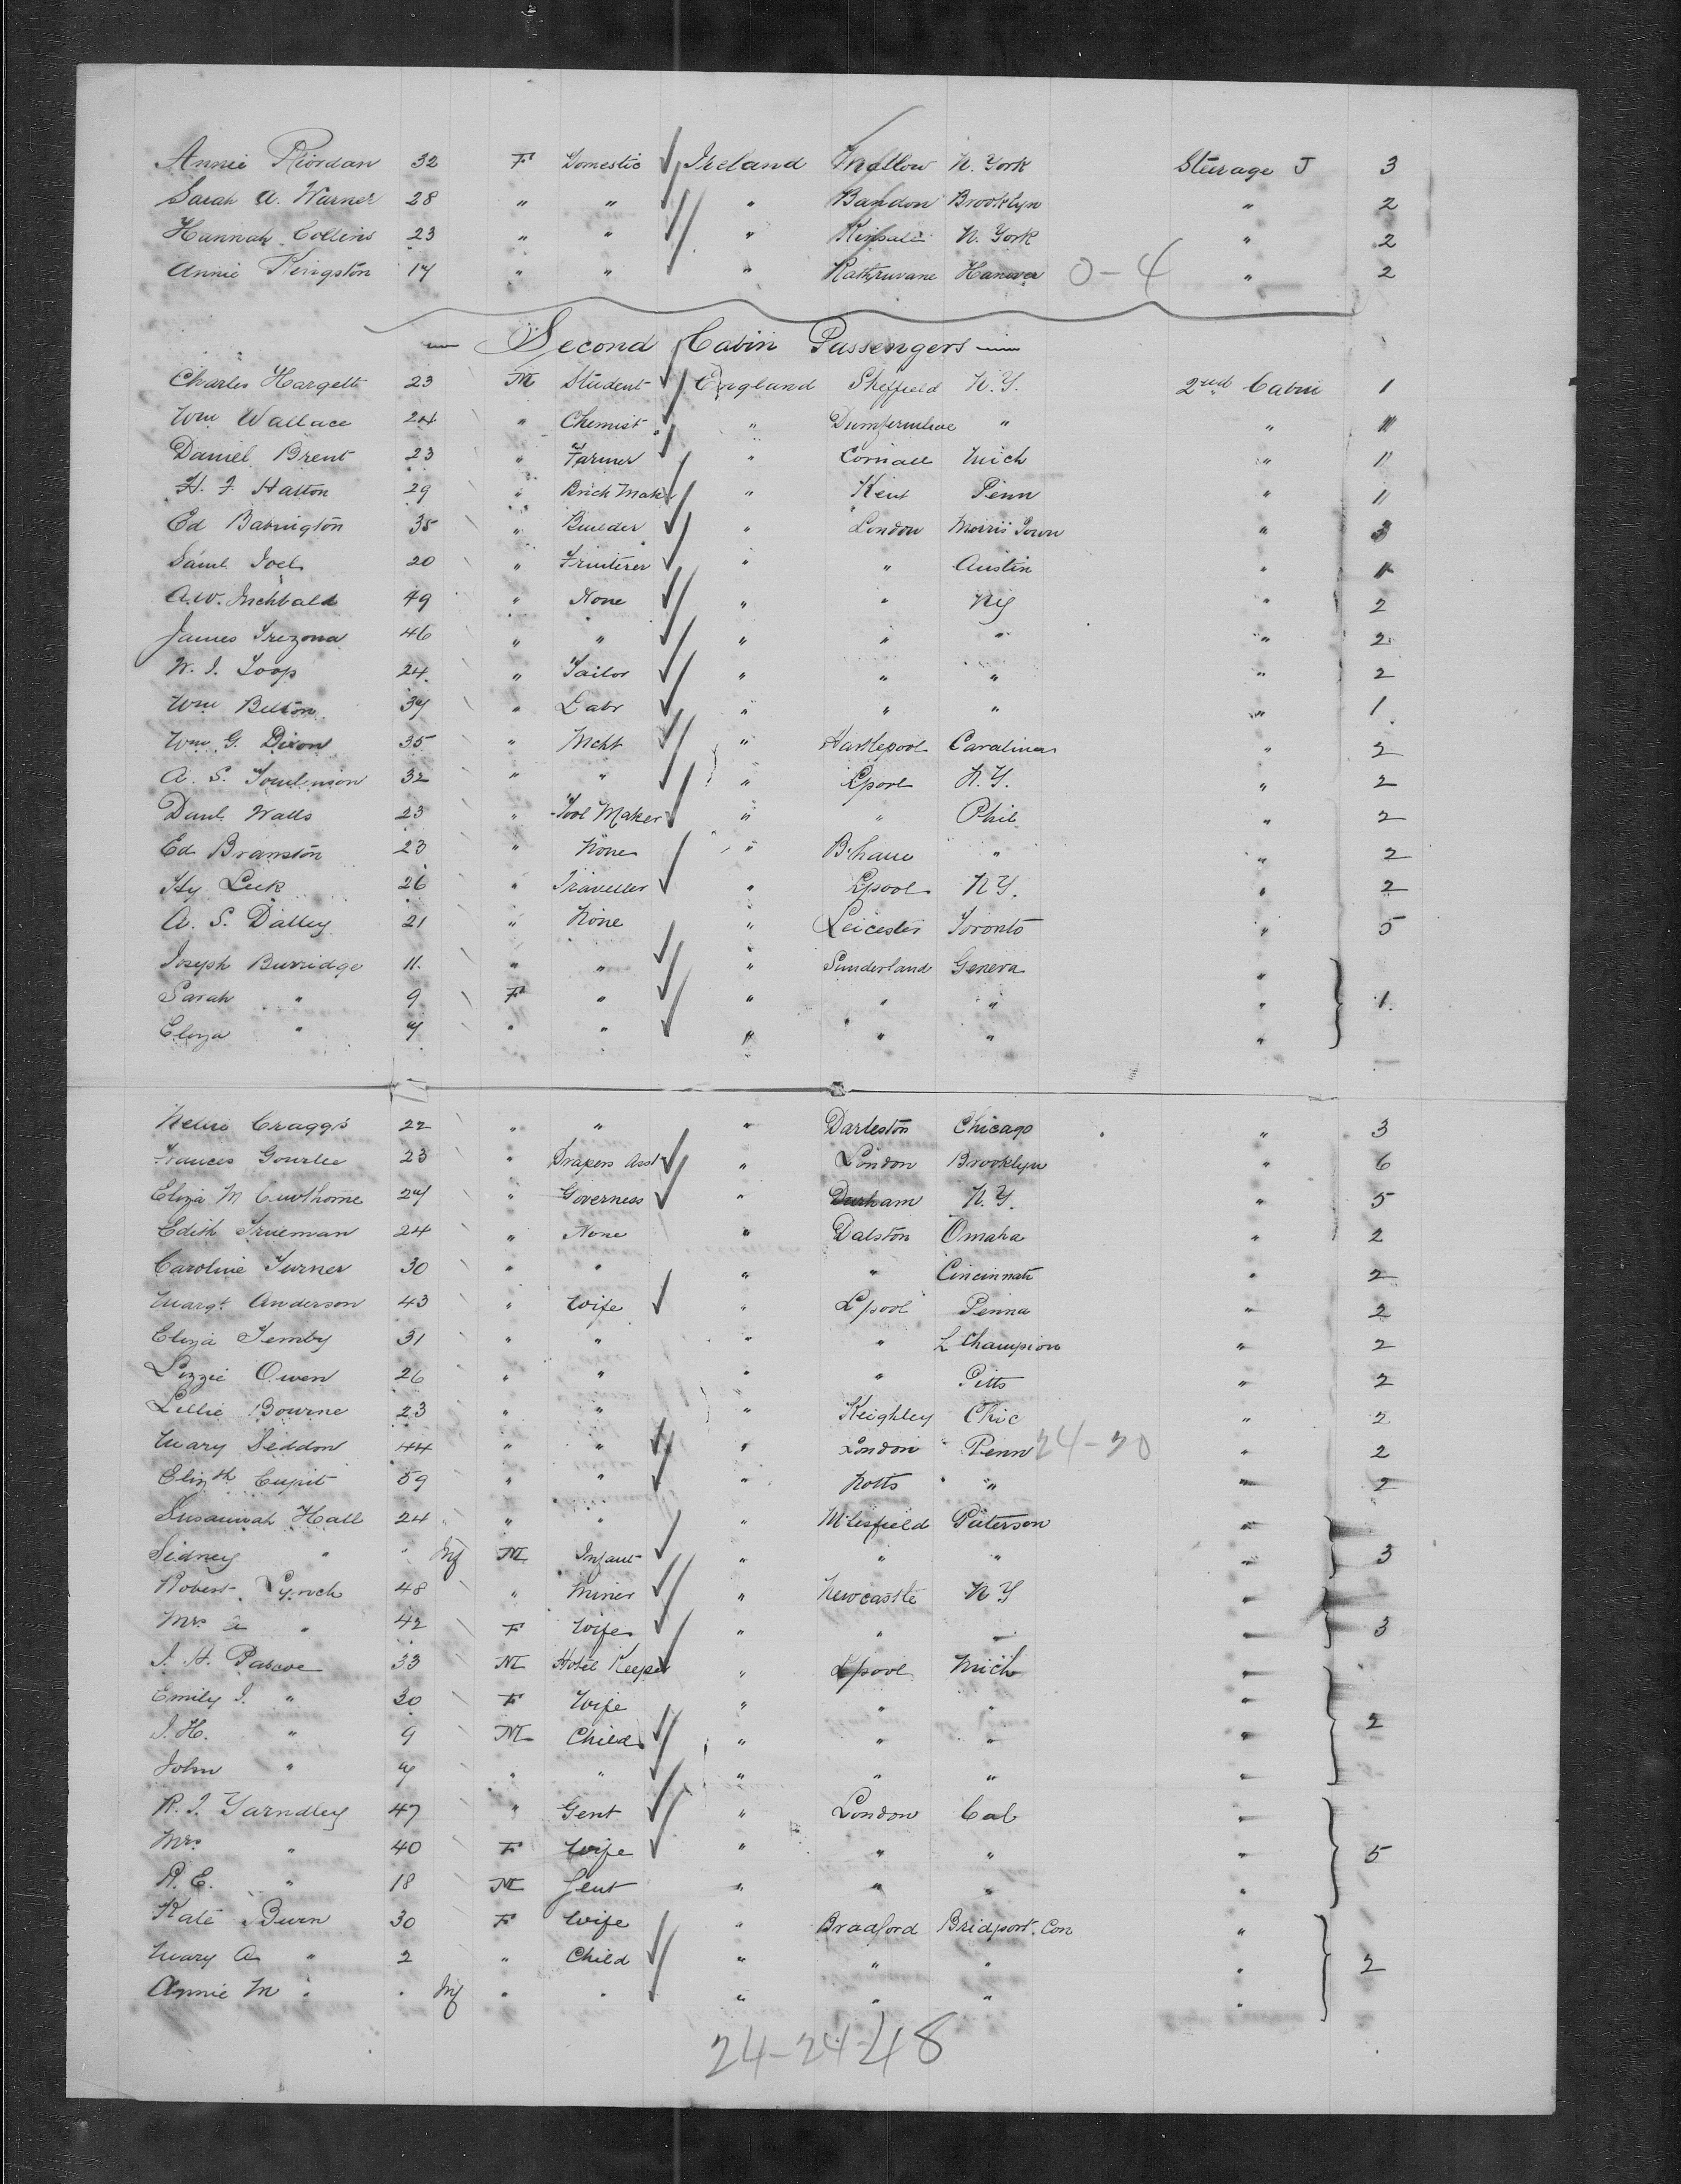 Annie Riordan 32 F Domestic Ireland Mallow N. York Steerage J 3
Sarah A. Warner 28 " " " Bandon Brooklyn " 2
Hannah Collins 23 " " " Kinsale N. York " 2
Annie Kingston 17 " " " Rathruvane Hanover 0-4 " 2
Second Cabin Passengers
Charles Hargett 23 M Student England Sheffield N.Y. 2nd Cabin 1
Wm Wallace 24 " Chemist " Dumfermline " " "
Daniel Brent 23 " Farmer " Cornall Mich " "
H. F. Hatton 29 " Brick Maker " Kent Penn " "
Ed Babington 35 " Builder " London Morris Town " 3
Saml Joel 20 " Fruiterer " " Austin "
A.W. Inchbald 49 " None " " NY " 2
James Trezona 46 " " " " " " 2
W. J. Toop 24 " Tailor " " " " 2
Wm Belton 37 " Labr " " " " 1
Wm G. Dixon 35 " Mcht " Hartlepool Caralinas " 2
A. S. Tomlinson 32 " " " Lpool N.Y. " 2
Danl. Walls 23 " Tool Maker " " Phil " 2
Ed Branston 23 " None " B'ham " " 2
Hy Leek 26 " Traveller " Lpool NY. " 2
A. S. Dalley 21 " None " Leicester Toronto " 5
Joseph Burridge 11 " " " Sunderland Geneva "
Sarah " 9 F " " " " " 1.
Eliza " 7 " " " " " "
Nellie Craggs 22 " " " Darleston Chicago " 3
Frances Gourlie 23 " Drapers Asst " London Brooklyn " 6
Eliza M Cawthorne 27 " Governess " Durham N.Y. " 5
Edith Trueman 24 " None " Dalston Omaha " 2
Caroline Turner 30 " " " " Cincinnati " 2
Margt Anderson 43 " Wife " Lpool Penna " 2
Eliza Temby 31 " " " " L Champion " 2
Lizzie Owen 26 " " " " Pitts " 2
Lillie Bourne 23 " " " Keighley Chic " 2
Mary Seddon 44 " " " London Penn 24-20 " 2
Elizth Cupit 59 " " " Notts " " 2
Susannah Hall 24 " " " M'lesfield Paterson "
Sidney " " Inf M Infant " " " " 3
Robert Lynch 48 " Miner " Newcastle N.Y "
Mrs A " 42 F Wife " " " " 3
J. H. Pascoe 33 M Hotel Keeper " Lpool Mich "
Emily J. " 30 F Wife " " " "
J. H. " 9 M Child " " " " 2
John " 7 " " " " " "
R. J. Yarndley 47 " Gent " London Cal "
Mrs " 40 F Wife " " " " 5
R. E. " 18 M Gent " " " "
Kate Burn 30 F Wife " Bradford Bridport. Con "
Mary A " 2 " Child " " " " 2
Annie M " " Inf " " " " " "
24-24-48